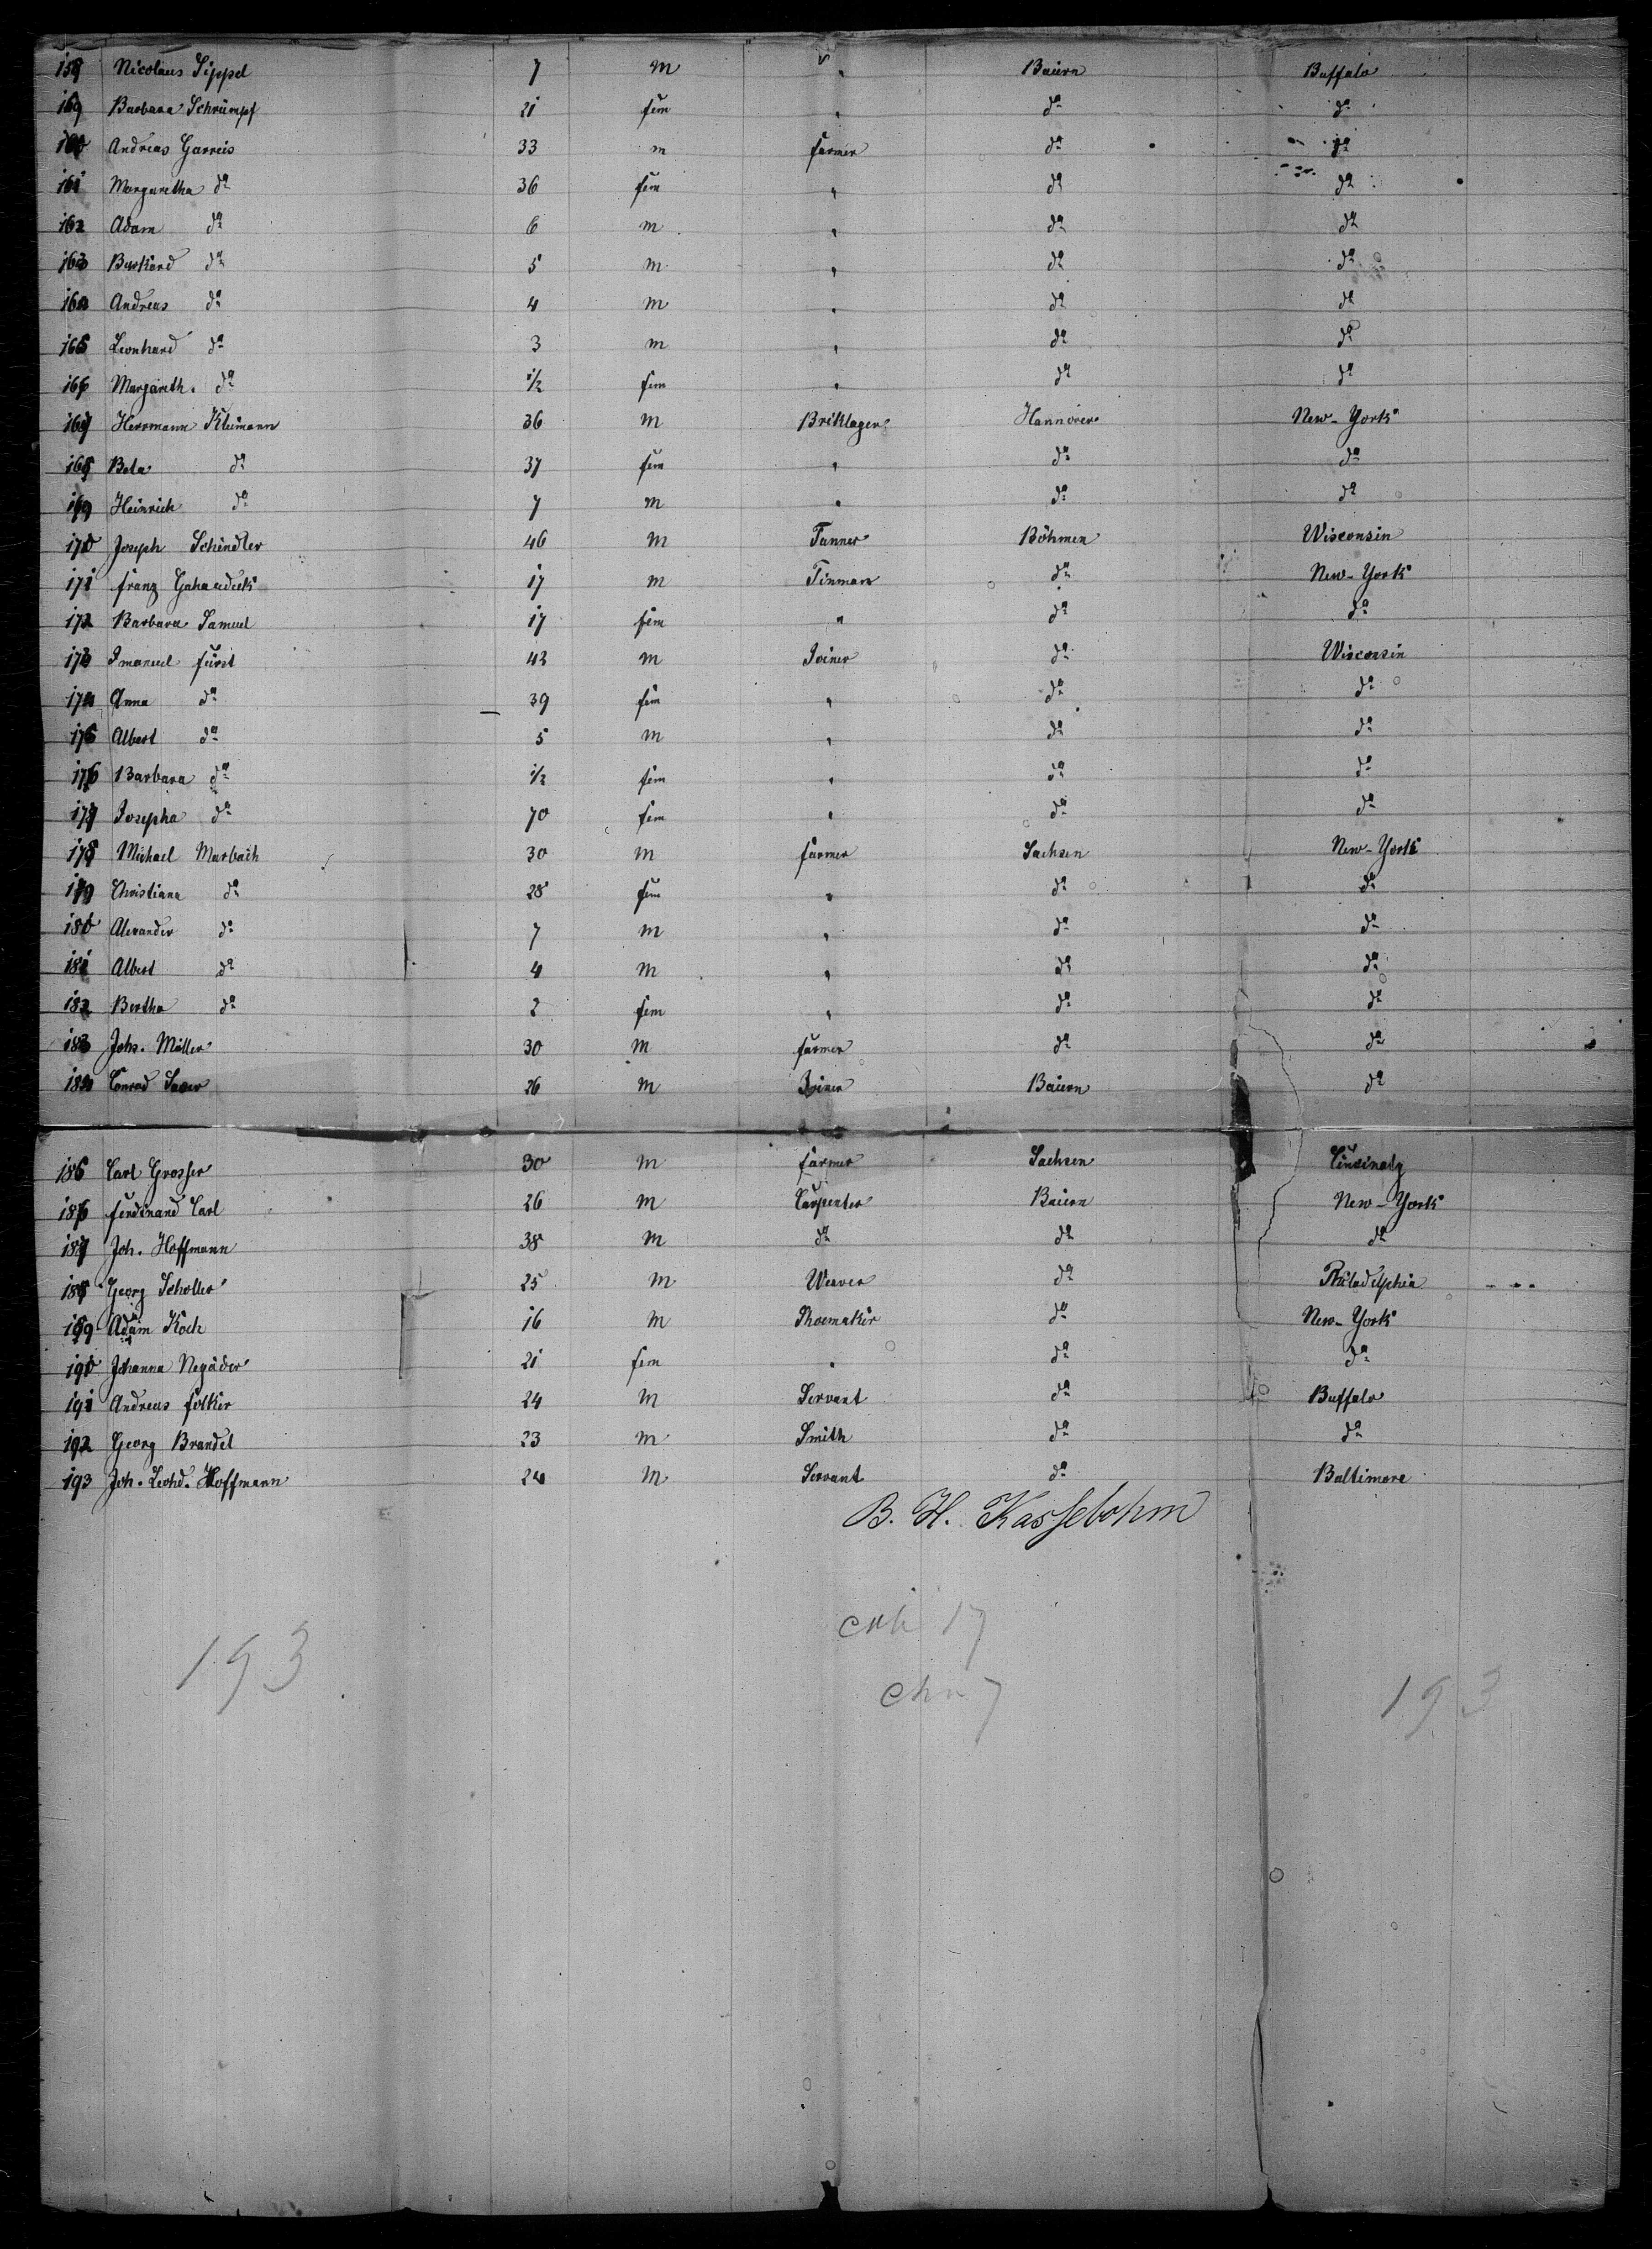 158 Nicolaus Sippel 7 m " Baiern Buffalo
159 Barbara Schrümpf 21 fem " do do
160 Andreas Garreis 33 m farmer do do
161 Margaretha do 36 fem " do do
162 Adam do 6 m " do do
163 Burkard do 5 m " do do
164 Andreas do 4 m " do do
165 Leonhard do 3 m " do do
166 Margareth. do 1/2 fem " do do
167 Herrmann Kleimann 36 m Briklager Hannover New-York
168 Beta do 37 fem " do do
169 Heinrich do 7 m " do do
170 Joseph Schindler 46 m Tanner Böhmen Wisconsin
171 Franz 17 m Tinman do New-York
172 Barbara Samuel 17 fem " do do
173 Imanuel Fürst 43 m Joiner do Wisconsin
174 Anna do 39 fem " do do
175 Albert do 5 m " do do
176 Barbara do 1/2 fem " do do
177 Josepha do 70 fem " do do
178 Michael Marbach 30 m farmer Sachsen New-York
179 Christiana do 28 fem " do do
180 Alexander do 7 m " do do
181 Albert do 4 m " do do
182 Bertha do 2 fem " do do
183 Johs. Müller 30 m farmer do do
184 Conrad 26 m Joiner Baiern do
185 Carl Grosser 30 m farmer Sachsen Cincinaty
186 Ferdinand Carl 26 m Carpenter Baiern New-York
187 Joh. Hoffmann 38 m do do do
188 Georg Scholler 25 m Weaver do Philadelphia
189 Adam Koch 16 m Shoemaker do New-York
190 Johanna Negäder 21 fem " do do
191 Andreas Folker 24 m Servant do Buffalo
192 Georg Brandel 23 m Smith do do
193 Joh. Leohd. Hoffmann 24 m Servant do Baltimore
B. H. Kassebohm
17
193
chn 7
193